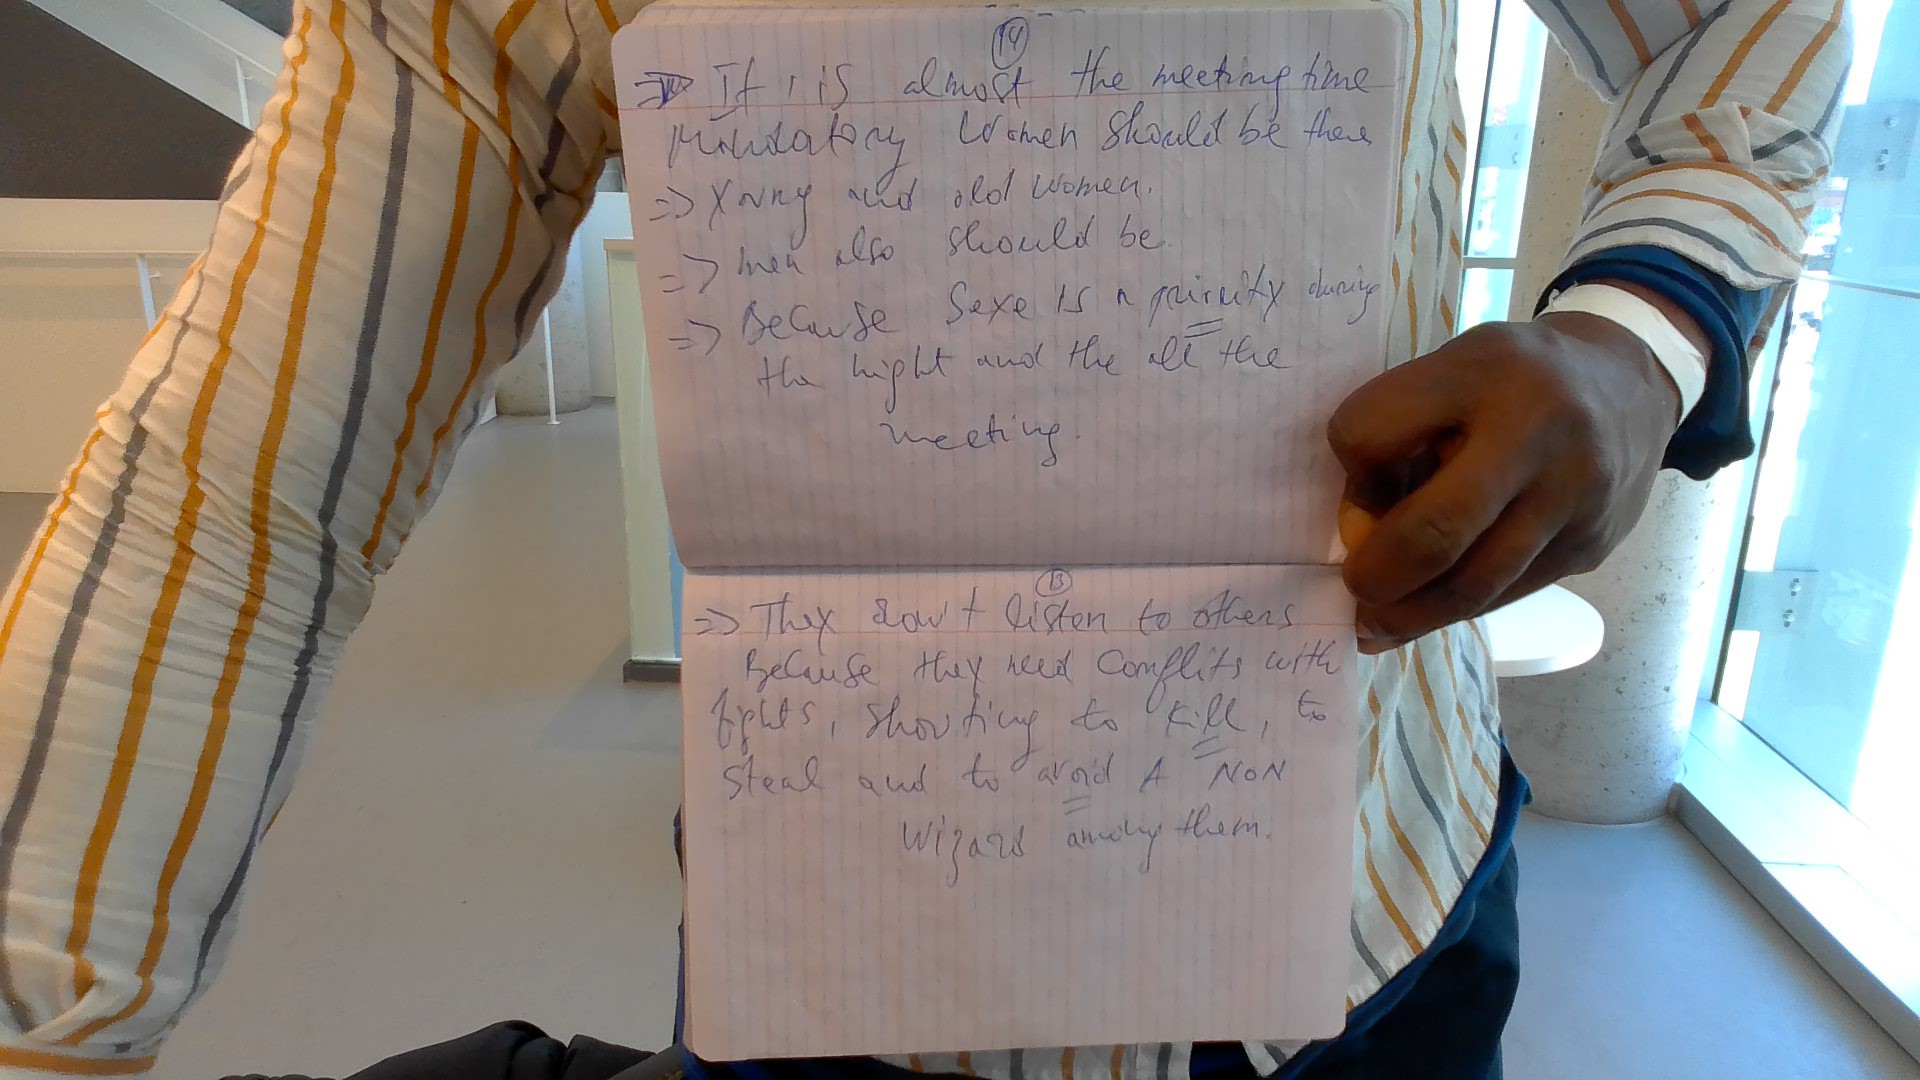 14
=> If , is almost the meeting time
Mandatory women should be there
=> Young and old women.
=> men also should be.
=> Because Sexe is a priority during
the night and the all the
meeting.
13
=> They don't listen to others
Because they need Conflits with
fights, shouting to kill, to
steal and to avoid A NON
Wizard among them.